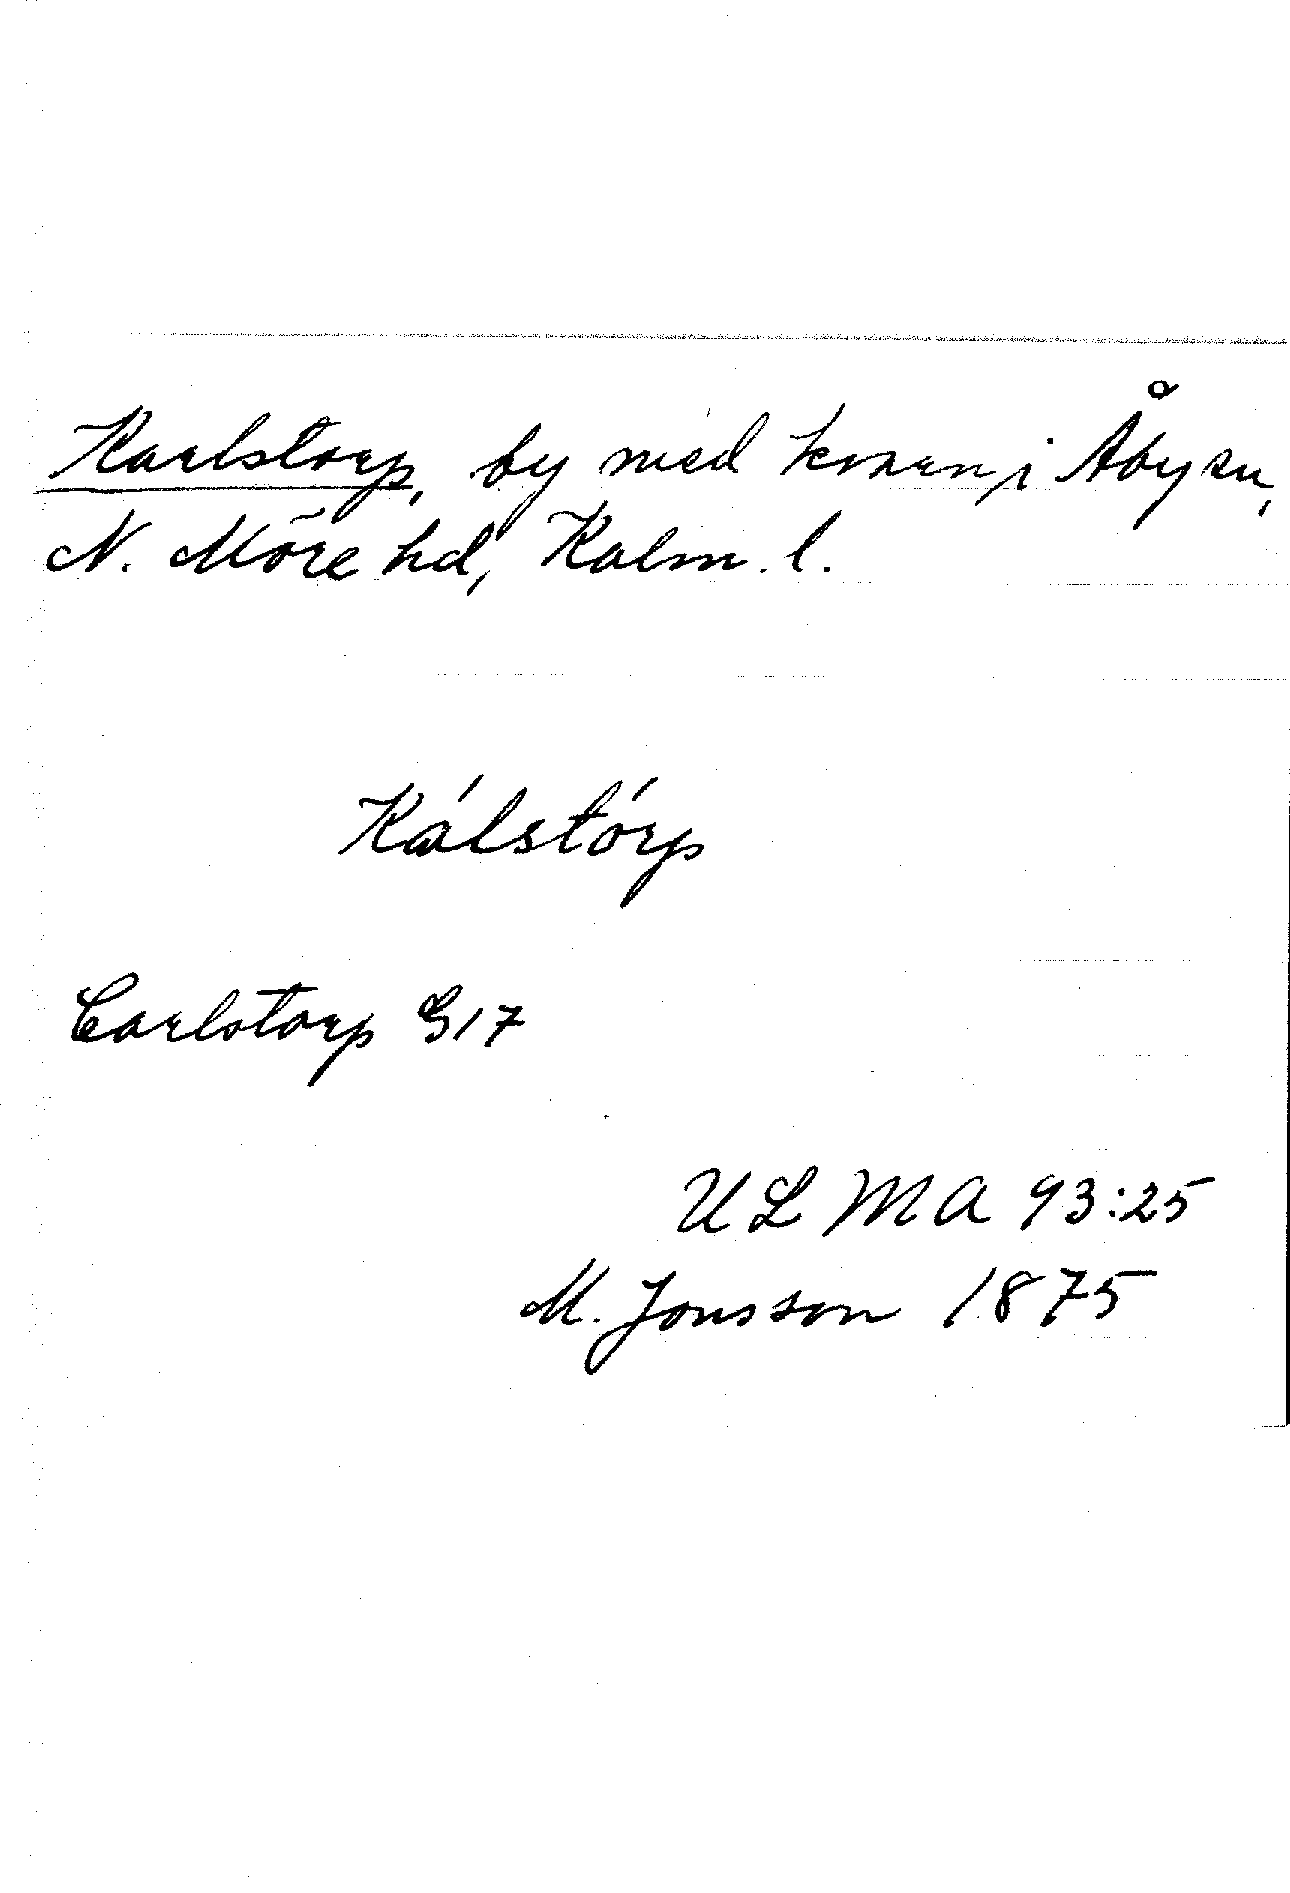 Karlstorp, by med kvarn, i Åby sn,
N. Möre hd, Kalm. l.
Kálstórp
Carlstorp G17
ULMA 93:25
M. Jonsson 1875